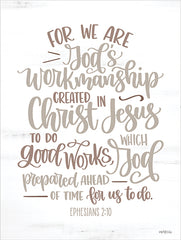 FOR WE ARE
God's
workmanship
CREATED IN
Christ Jesus
TO DO WHICH
Good Works, God
prepared AHEAD
OF TIME for us to do.
EPHESIANS 2:10